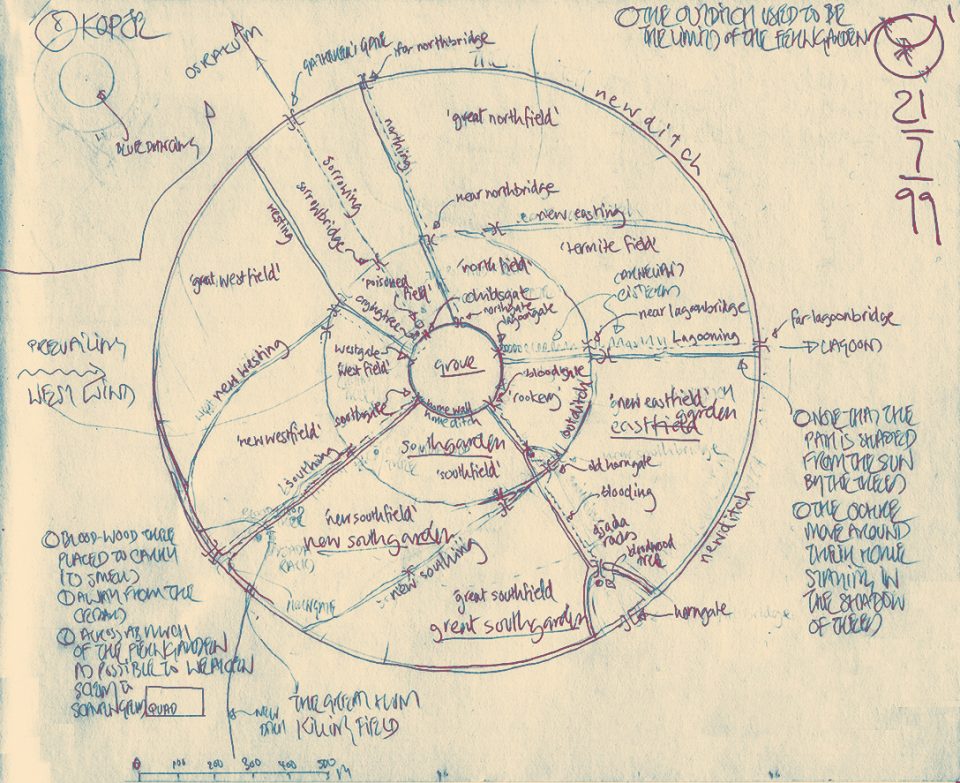 8 KOPJE
THE OUTDITCH USED TO BE
THE LIMITS OF THE FERNGARDEN
21
7
99
GATHERER'S GATE
far northbridge
newditch
'great northfield'
northing
sorrowing
sorrowbridge
westing
near northbridge
new easting
'termite field'
'great westfield'
'poisoned
field'
'northfield'
northgate
lagoongate
CISTERN
near lagoonbridge
Lagooning
far lagoonbridge
LAGOON
PREVAILING
WEST WIND
new westing
westgate
'westfield'
grove
bloodgate
'rookery'
outditch
'new eastfield'
garden
eastfield
southgate
home wall
home ditch
southgarden
'southfield'
'new westfield'
southing
old horngate
blooding
'new southfield'
new southgarden
new southing
great southfield
great southgarden
bloodwood
tree
horngate
newditch
NOTE THAT THE
PATH IS SHADED
FROM THE SUN
BY THE TREES
THE
MOVE AROUND
THEIR HOME
STAYING IN
THE SHADOW
OF TREES
BLOOD-WOOD TREE
PLACED TO CARRY
ITS SMELL
1 AWAY FROM THE
2 ACROSS AS MUCH
OF THE FERNGARDEN
AS POSSIBLE TO WEAKEN
SCENT
QUAD
NEW
THE GREAT
KILLING FIELD
0 100 200 300 400 500 M